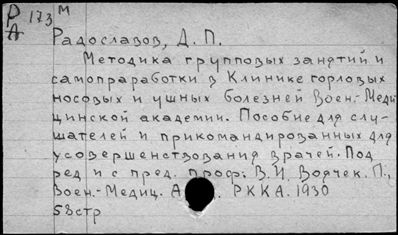 Р 173 м
А
Радославов, Д. П.
Методика групповых занятий и
самопраработки в Клинике горловых
носовых и ушных болезней Воен.-Меди
цинской академии. Пособие для слу-
шателей и прикомандированных для
усовершенствования врачей. Под
ред и с пред. проф. В. И. Воячек. Л.,
Воен.-Медиц. А РККА. 1930
58стр